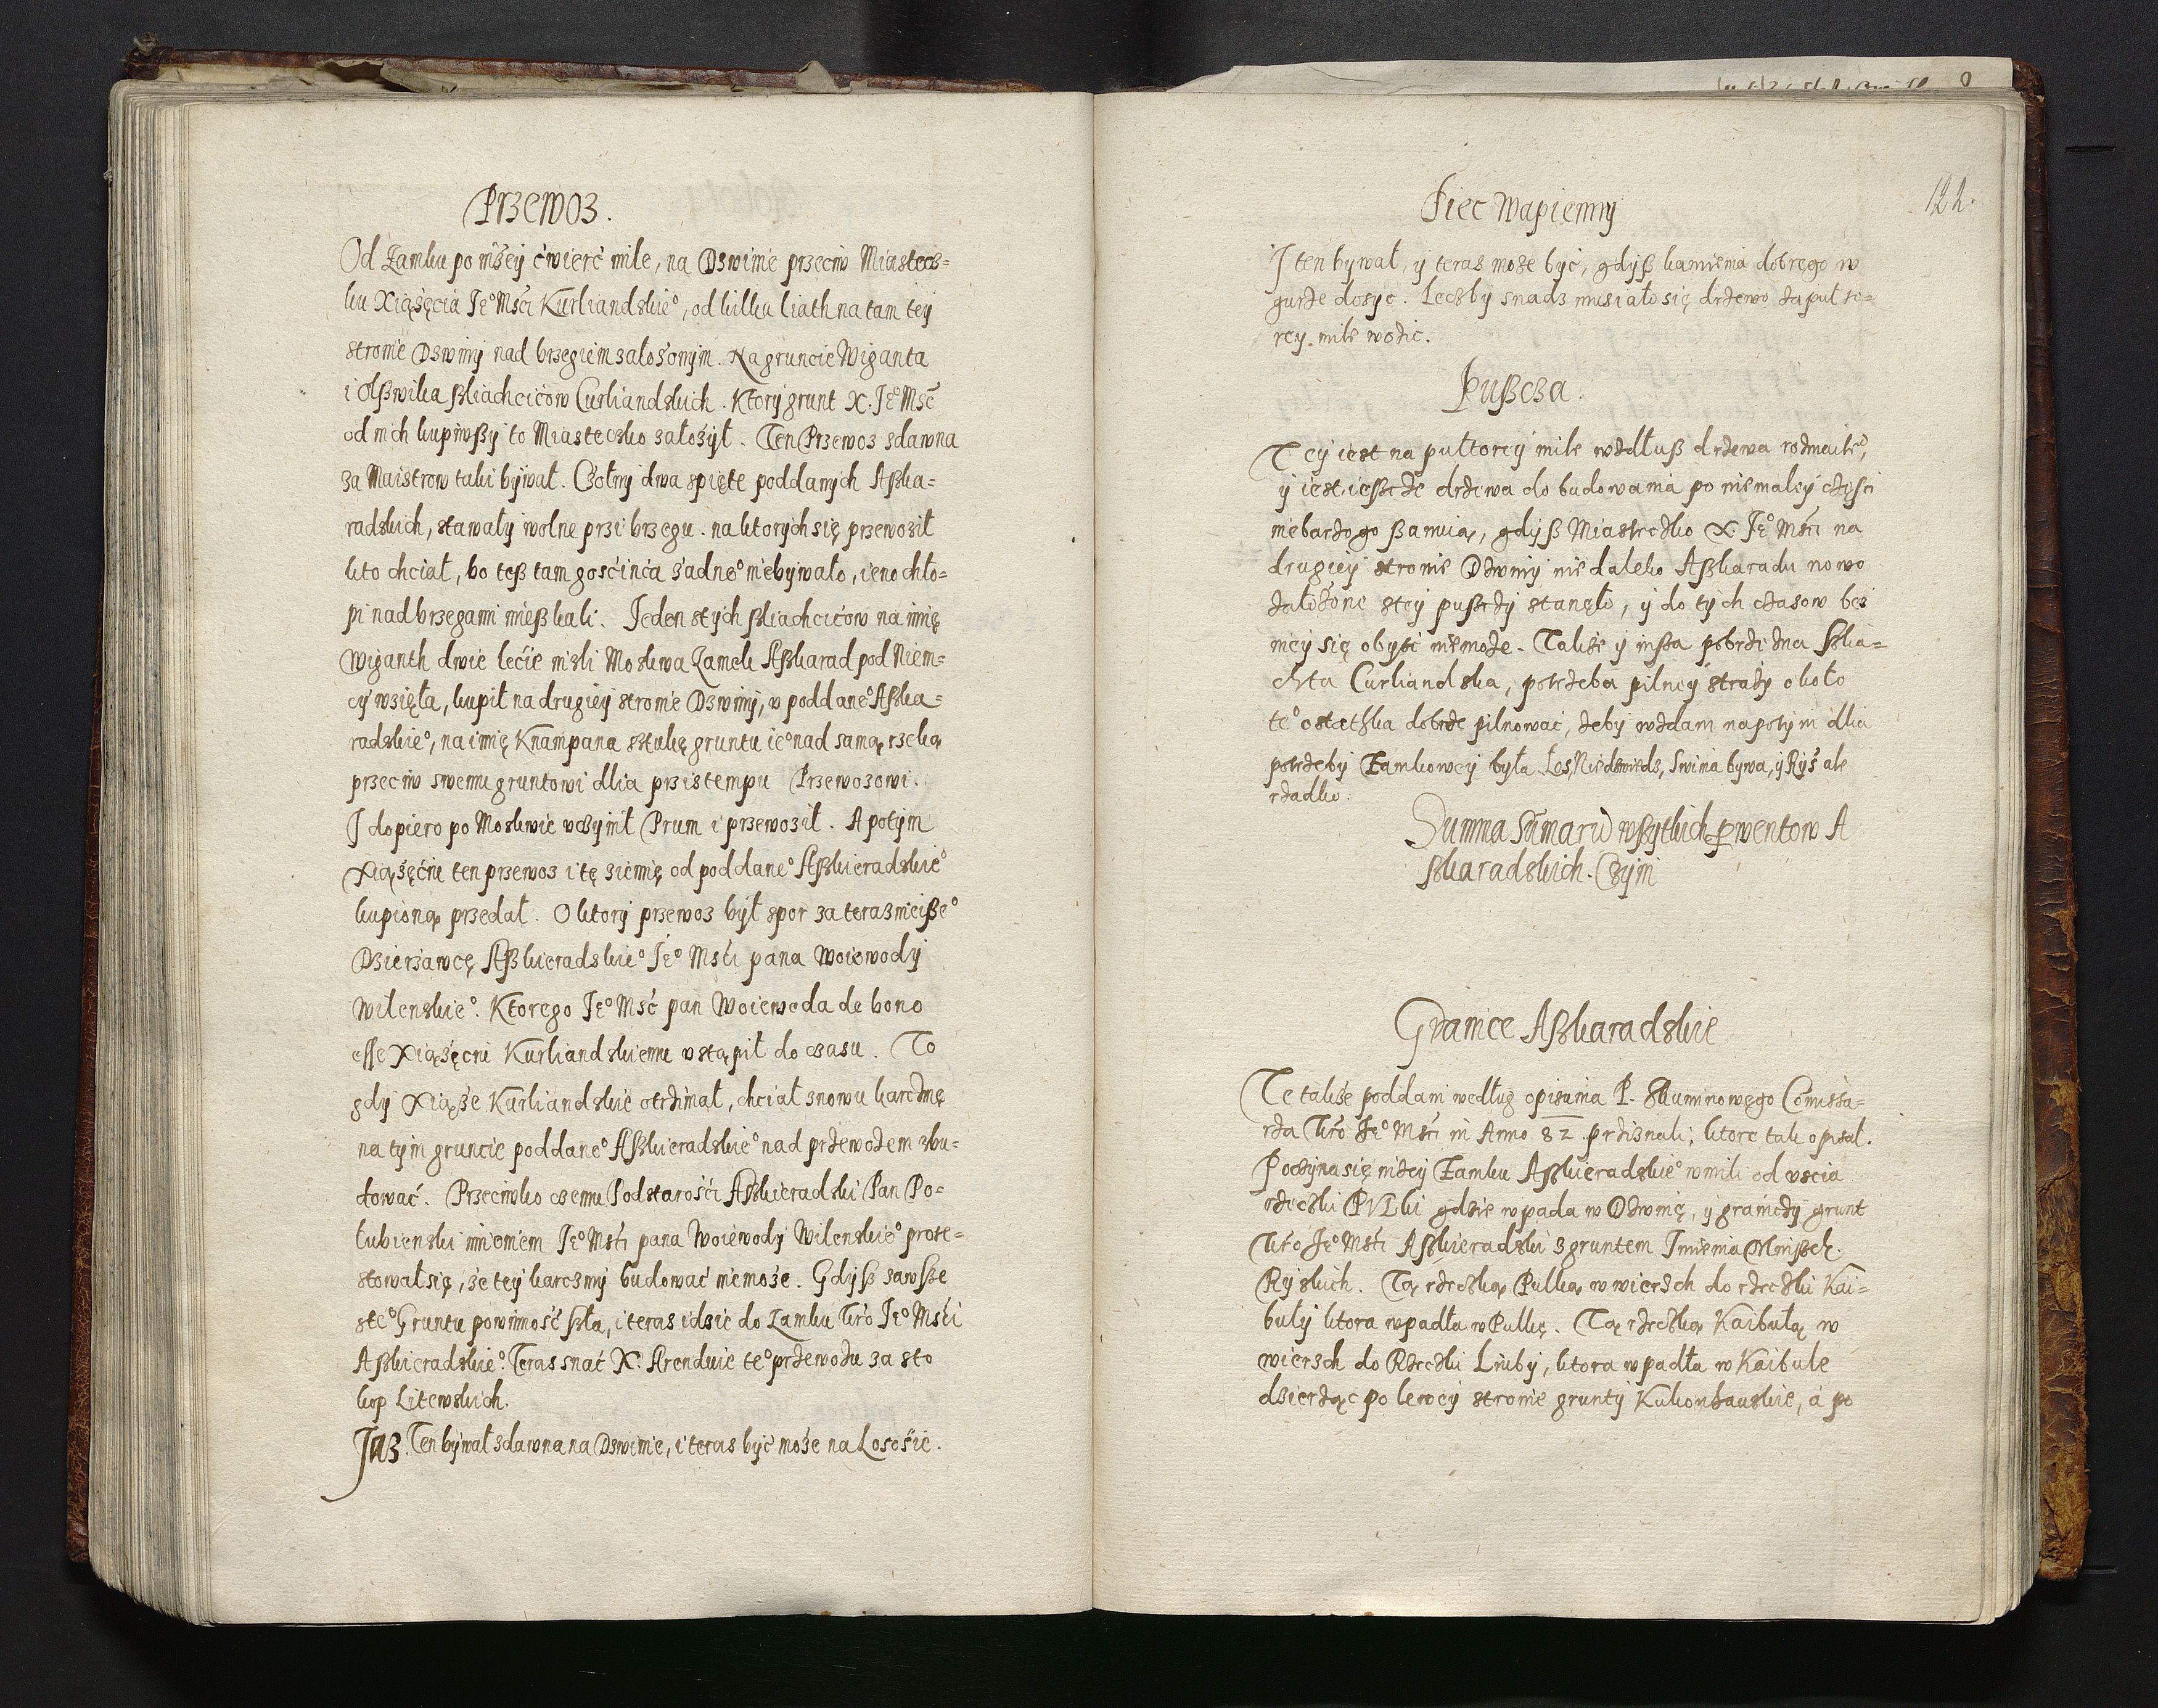 Przewoz.
Od Zamku poniżey ćwierć mile, na Dzwinie przeciw Miastecz=
ku Xiążęcia Je° Mści Kurliandskie°, od kilku liath na tam tey
stronie Dzwiny nad brzegiem założonym. Na gruncie Wiganta
i Olßwika ßliachcićow Curliandskich. Ktory grunt X. Je° Msć
od nich kupiwßy to Miasteczko założył. Ten Przewoz zdawna
za Maistrow taki bywał. Czołny dwa spięte poddanych Aßka=
radskich, stawały wolne przi brzegu. na ktorych się przewoził
kto chciał, bo teß tam gośćińca żadne° niebywało, ieno chło=
pi nad brzegami mießkali. Jeden z tych ßliachcićow na imię
Wiganth dwie lećie niżli Moskwa Zamek Aßkarad pod Niem=
cy wzięła, kupił na drugiey stronie Dzwiny, v poddane° Aßka=
radskie°, na imię Knampana sztukę gruntu ie° nad samą rzeką
przeciw swemu gruntowi dlia przistempu Przewozowi.
I dopiero po Moskwie vczynił Prum i przewoził. A potym
Xiążęćiu ten przewoz i tę ziemię od poddane° Aßkieradskie°
kupioną przedał. O ktory przewoz był spor za teraznieiße°
Dzierżawcę Aßkieradskie° Je° Mśći pana Woiewody
Wilenskie°. Ktorego Je° Msć pan Woiewoda de bono
esse Xiążęciu Kurliandskiemu vstąpił do czasu. To
gdy Xiąże Kurliandskie otrzimał, chciał znowu karczmę
na tym gruncie poddane° Aßkieradskie° nad przewozem zbu=
dować. Przeciwko czemu Podstarośći Aßkieradski Pan Po=
łubienski imieniem Je° Mśći pana Woiewody Wilenskie° prote=
stował się, że tey karczmy budować niemoże. Gdyß zawße
z te° Gruntu powinność ßła, i teras idzie do Zamku Kro Je° Mśći
Aßkieradskie°. Teras snać X. Arenduie te° przewozu za sto
kop Litewskich.
Jaz. Ten bywał zdawna na Dzwinie, i teras być może na Łosośie.
122.
Piec Wapienny
I ten bywał, y teras może być, gdyß kamienia dobrego w
gurze dosyć. Leczby snadz musiało się drzewo za puł to=
rey mile wozic.
Pußcza.
Tey iest na pułtorey mile wzdłuß drzewa rozmaite°,
y iest ießcze drzewa do budowania po niemałey części
niebarzo go ßanuią, gdyß Miasteczko X. Je° Mści na
drugiey stronie Dzwiny nie daleko Aßkaradu nowo
założone z tey pußczy stanęło, y do tych czasow bez
niey się obyść niemoże. Także y inßa pobrzeżna Szlia=
chta Curliandska, potrzeba pilney straży około
te° ostathka dobrze pilnować, żeby wżdam napotym dlia
potrzeby Zamkowey była. Łos, Niedzwiedz, Swinia bywa, y Ryś ale
rzadko.
Summa Sumaru wßytkich prwentow A
ßkaradskich. Czyni
Granice Aßkaradskie
Te także poddani według opisania P. Skuminowego Comissa=
rza Kro Je° Mści in Anno 82. przyznali; ktore tak opisał.
Poczyna się niżey Zamku Aßkieradskie° w mili od vscia
rzeczki PVLki gdzie wpada w Dzwinę, y graniczy grunt
Kro Je° Mści Aßkieradski z gruntem Imienia Mnißek.
Ryskich. Tą rzeczką Pulką w wierzch do rzeczki Kai=
buły ktora wpadła w Pulkę. Tą rzeczką Kaibułą w
wierzch do Rzeczki Liuby, ktora wpadła w Kaibule
dzierżąc po lewey stronie grunty Kukonhauskie, á po